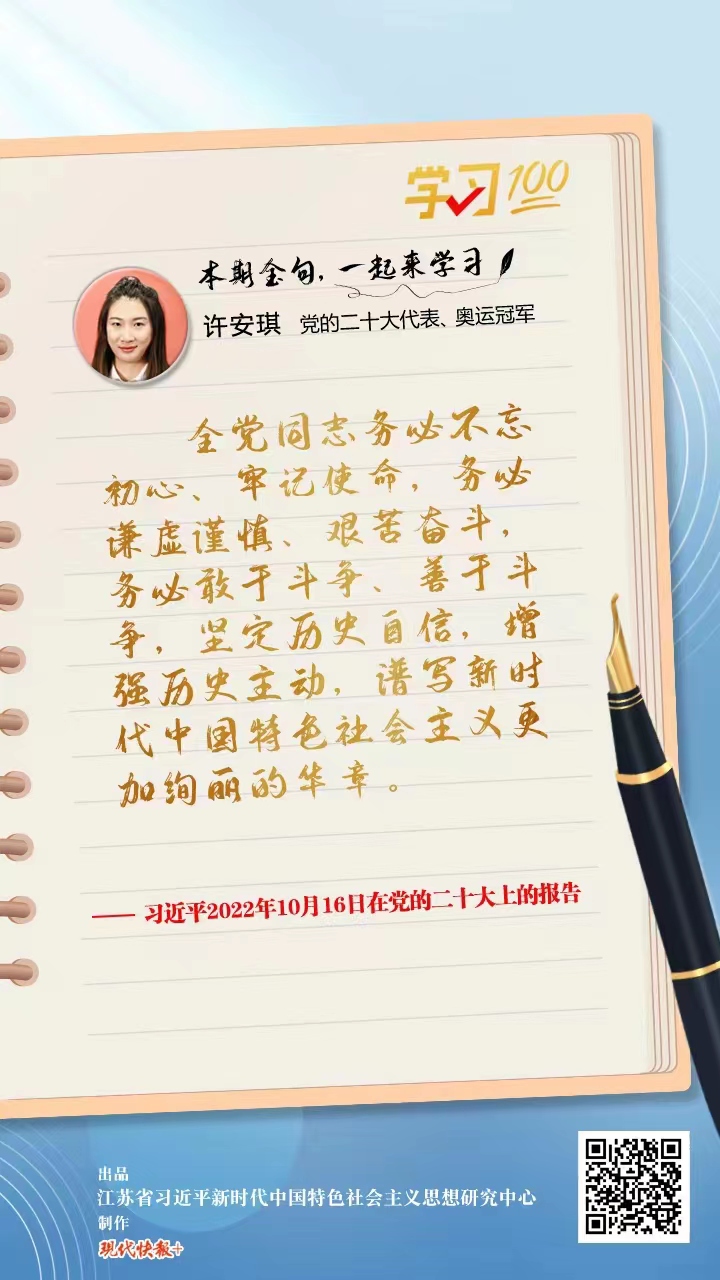 学习100
本期金句,一起来学习
许安琪 党的二十大代表、奥运冠军
全党同志务必不忘
初心、牢记使命,务必
谦虚谨慎、艰苦奋斗,
务必敢于斗争、善于斗
争,坚定历史自信,增
强历史主动,谱写新时
代中国特色社会主义更
加绚丽的华章。
—— 习近平2022年10月16日在党的二十大上的报告
出品
江苏省习近平新时代中国特色社会主义思想研究中心
制作
现代快报+